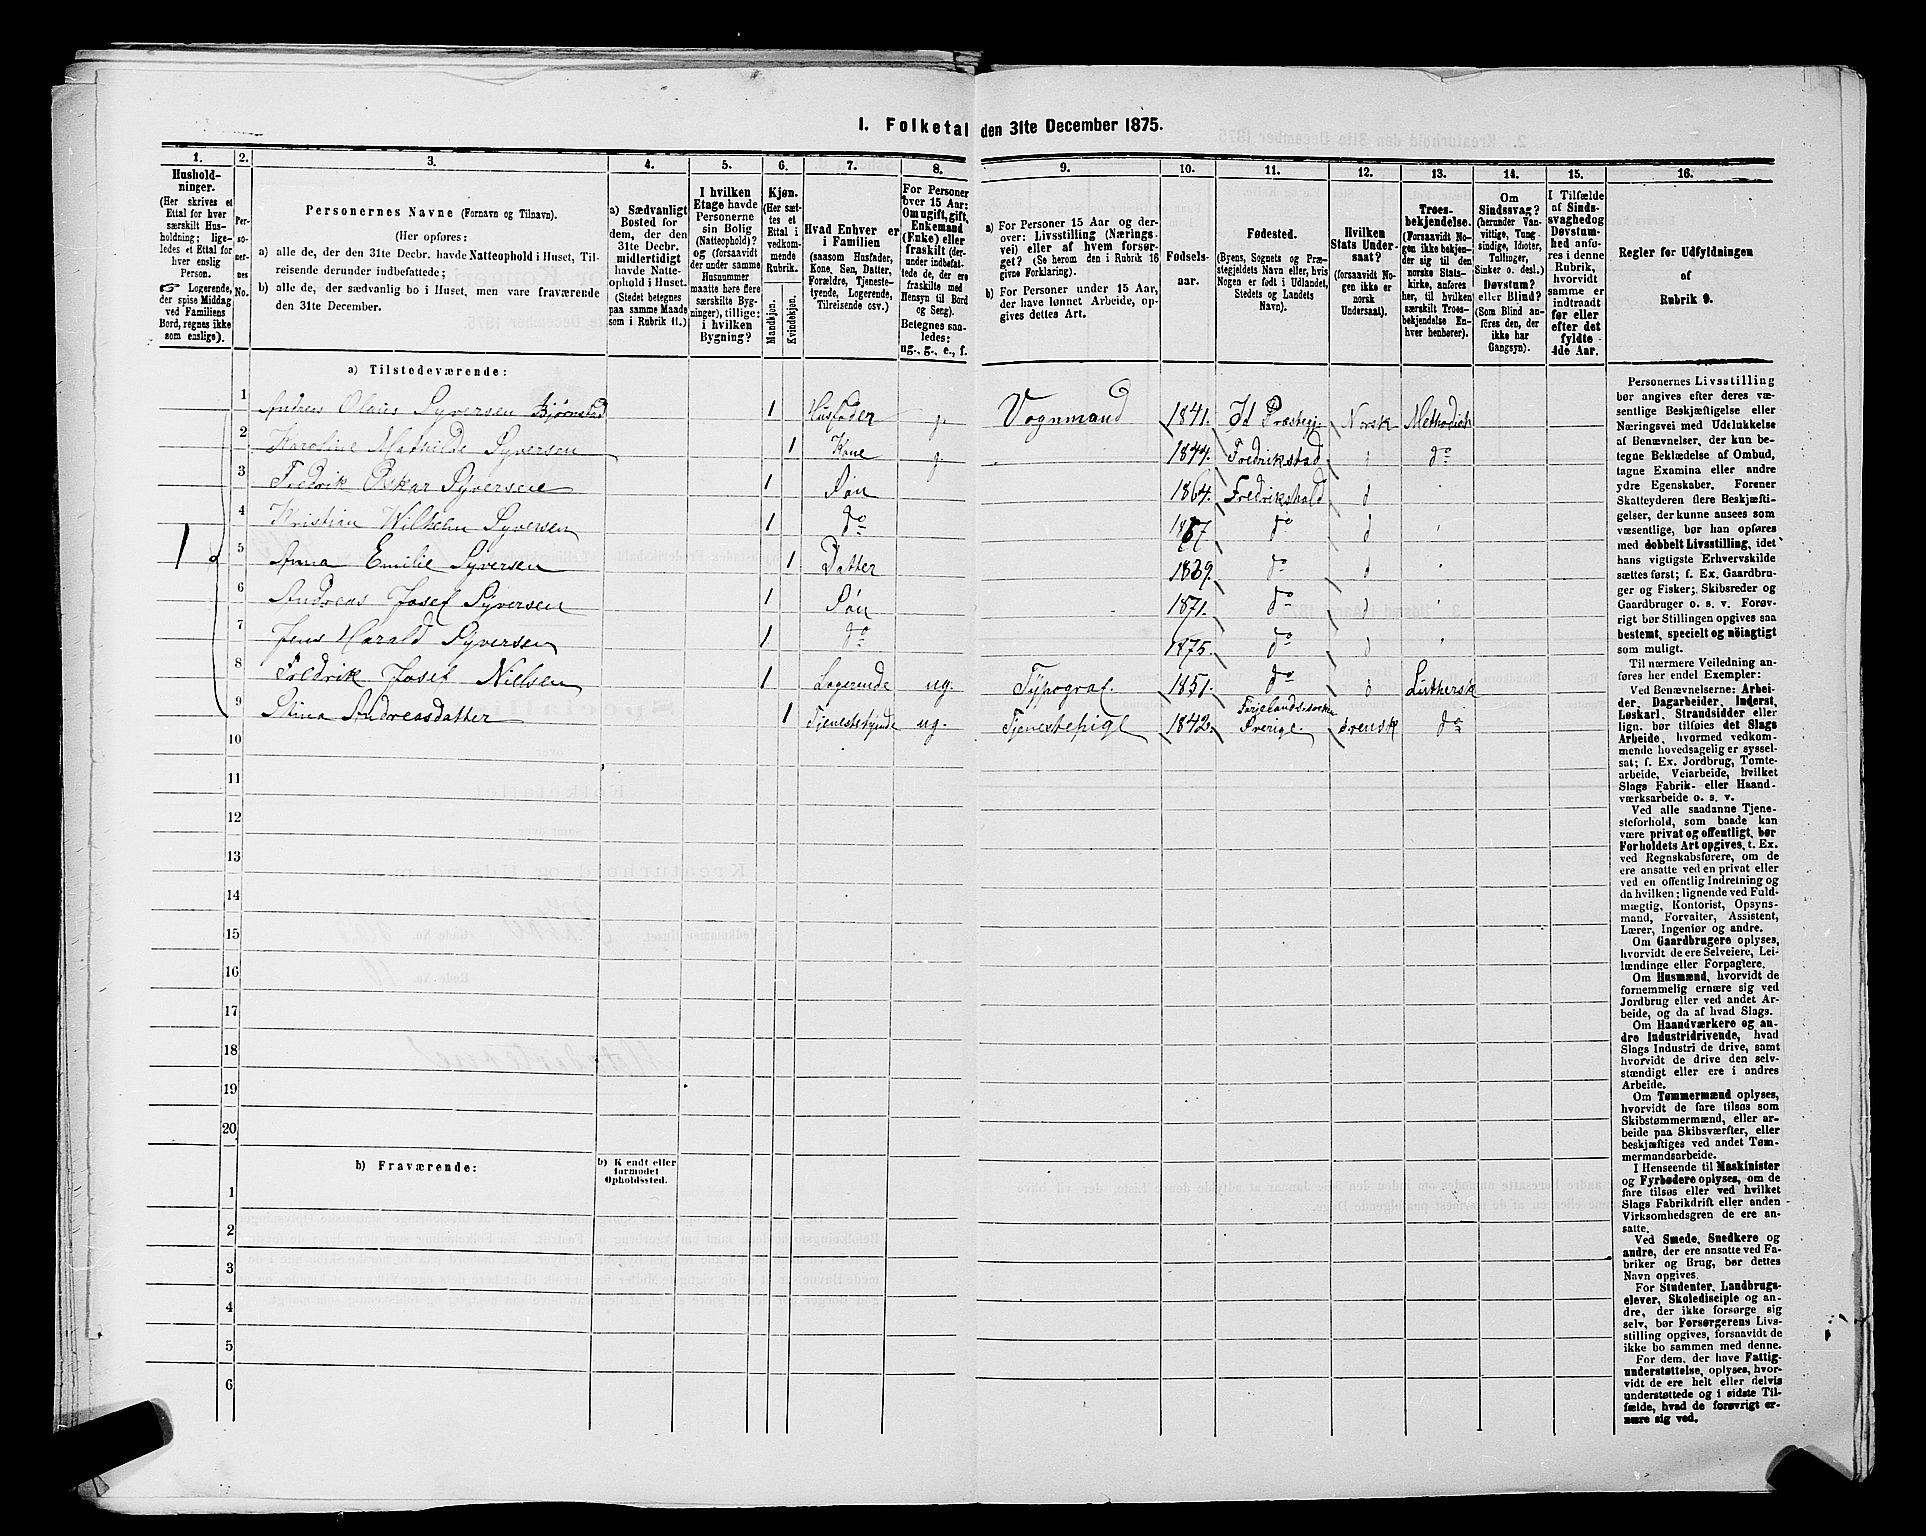 I. Folketal den 31te December 1875.
1. 2. 3. 4. 5. 6. 7. 8. 9. 10. 11. 12. 13. 14. 15. 16.
Husholdninger.
(Her skrives et
Ettal for hver
særskilt Husholdning;
ligeledes et Ettal for
hver enslig
Person.
☞ Logerende,
der spise Middag
ved Familiens
Bord, regnes ikke
som enslige).
Personernes No.
Personernes Navne (Fornavn og Tilnavn).
(Her opføres:
a) alle de, der den 31te Decbr. havde Natteophold i Huset, Tilreisende derunder indbefattede;
b) alle de, der sædvanlig bo i Huset, men vare fraværende
den 31te December.
a) Sædvanligt
Bosted for
dem, der den
31te Decbr.
midlertidigt
havde Natteophold i Huset.
(Stedet betegnes
paa samme Maade
som i Rubrik 11.)
I hvilken
Etage havde
Personerne
sin Bolig
(Natteophold)?
og (forsaavidt
der under samme
Husnummer
maatte høre flere
særskilte Bygninger), tillige:
i hvilken
Bygning?
Kjøn.
(Her sættes et
Ettal i
vedkommende
Rubrik.
Mandkjøn.
Kvindekjøn.
Hvad Enhver er
i Familien
(saasom Husfader,
Kone, Søn, Datter,
Forældre, Tjenestetyende, Logerende,
Tilreisende osv.)
For Personer
over 15 Aar:
Om ugift, gift,
Enkemand
(Enke) eller
fraskilt (derunder indbefattede, de, der ere
fraskilte med
Hensyn til Bord
og Seng).
Betegnes saaledes:
ug., g., e., f.
a) For Personer 15 Aar og derover: Livsstilling (Næringsvei) eller af hvem forsørget? (Se herom den i Rubrik 16
givne Forklaring).
b) For Personer under 15 Aar,
der have lønnet Arbeide, opgives dettes Art.
Fødselsaar.
Fødested.
(Byens, Sognets og Præstegjeldets Navn eller, hvis
Nogen er født i Udlandet,
Stedets og Landets
Navn).
Hvilken
Stats Undersaat?
(forsaavidt Nogen ikke er
norsk
Undersaat).
Troesbekjendelse.
(Forsaavidt Nogen ikke bekjender sig til den
norske Statskirke, anføres
her, til hvilken
særskilt Troesbekjendelse Enhver henhører).
Om
Sindssvag?
(herunder Vanvittige, Tungsindige, Idioter,
Tullinger,
Sinker o. desl.)
Døvstum?
eller Blind?
(Som Blind anføres den, der
ikke har
Gangsyn).
I Tilfælde
af Sindssvaghed og
Døvstumhed anføres i denne
Rubrik,
hvorvidt
samme er
indtraadt
før eller
efter det
fyldte
4de Aar.
Regler for Udfyldningen
af
Rubrik 9.
a) Tilstedeværende:
1 Andreas Olaus Syversen Bjørnstad 1 Husfader g. Vognmand 1841. Id Præstegj. Norsk Methodist
2 Karoline Mathilde Syversen 1 Kone g. 1844. Fredrikstad d do
3 Fredrik Oskar Syversen 1 Søn 1864. Fredrikshald d
4 Kristian Wilhelm Syversen 1 do 1867 do d
1 5 Anna Emilie Syversen 1 Datter 1869. do d
6 Andreas Josef Syversen 1 Søn 1871. do d
7 Jens Harald Syversen 1 do 1875. do d
8 Fredrik Josef Nielsen 1 Logerende ug. Typograf. 1851. do d Luthersk
9 Stina Andreasdatter 1 Tjenestetyende ug. Tjenestepige 1842. Sverige. Svensk do
10
11
12
13
14
15
16
17
18
19
20
b) Fraværende:
b) Kjendt eller
formodet
Opholdssted.
1
2
3
4
5
6
Personernes Livsstilling
bør angives efter deres væsentlige Beskjæftigelse eller
Næringsvei med Udelukkelse
af Benævnelser, der kun betegne Beklædelse af Ombud,
tagne Examina eller andre
ydre Egenskaber. Forener
Skatteyderen flere Beskjæftigelser, der kunne ansees som
væsentlige, bør han opføres
med dobbelt Livsstilling, idet
hans vigtigste Erhvervskilde
sættes først; f. Ex. Gaardbruger og Fisker; Skibsreder og
Gaardbruger o. s. v. Forøvrigt bør Stillingen opgives saa
bestemt, specielt og nöiagtigt
som muligt.
Til nærmere Veiledning anføres her endel Exempler:
Ved Benævnelserne: Arbeider, Dagarbeider, Inderst,
Løskarl, Strandsidder eller
lign. bør tilføies det Slags
Arbeide, hvormed vedkommende hovedsagelig er sysselsat; f. Ex. Jordbrug, Tømtearbeide, Veiarbeide, hvilket
Slags Fabrik- eller Haandværksarbeide o. s. v.
Ved alle saadanne Tjenesteforhold, som baade kan
være privat og offentligt, bør
Forholdets Art opgives, t. Ex.
ved Regnskabsførere, om de
ere ansatte ved en privat eller
ved en offentlig Indretning og
da hvilken; lignende ved Fuldmægtig, Kontorist, Opsynsmand, Forvalter, Assistent,
Lærer, Ingeniør og andre.
Om Gaardbrugere oplyses,
hvorvidt de ere Selveiere, Leilændinge eller Forpagtere.
Om Husmænd, hvorvidt de
fornemmelig ernære sig ved
Jordbrug eller ved andet Arbeide, og da af hvad Slags.
Om Haandværkere og andre Industridrivende, hvad
Slags Industri de drive, samt
hvorvidt de drive den selvstændigt eller ere i andres
Arbeide.
Om Tømmermænd oplyses,
hvorvidt de fare tilsøs som
Skibstømmermænd, eller arbeide paa Skibsværfter, eller
beskjæftiges ved andet Tømmermandsarbeide.
I Henseende til Maskinister
og Fyrbødere oplyses, om de
fare tilsøs eller ved hvilket
Slags Fabrikdrift eller anden
Virksomhedsgren de ere ansatte.
Ved Smede, Snedkere og
andre, der ere ansatte ved Fabriker og Brug, bør dettes
Navn opgives.
For Studenter, Landbrugselever, Skoledisciple og andre, der ikke forsørge sig
selv, bør Forsørgerens Livsstilling opgives, forsaavidt de
ikke bo sammen med denne.
For dem, der have Fattigunderstøttelse, oplyses, hvorvidt de ere helt eller delvis
understøttede og i sidste Tilfælde, hvad de forøvrigt ernære sig ved.